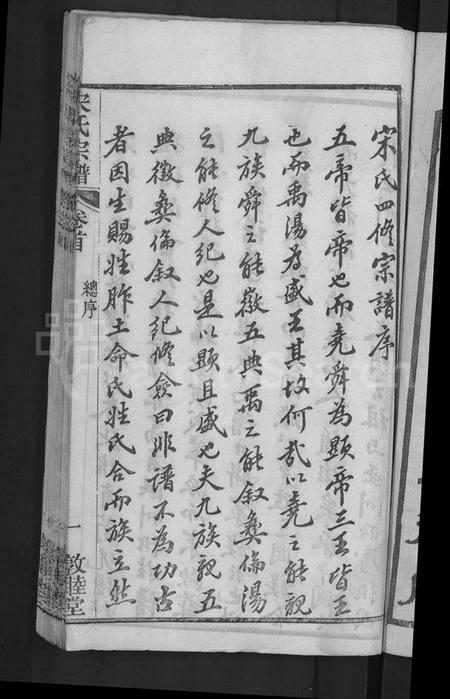 宋氏四修宗譜序
五帝皆帝也而堯舜為顯帝三王皆王
也而禹湯為盛王其故何哉以堯之能親
九族舜之能徽五典禹之能叙彝倫湯
之能修人紀也是以顯且盛也夫九族親五
典徽彝倫叙人紀修僉曰非譜不為功古
者因生賜姓胙土命氏姓氏合而族立然
宋氏宗譜
卷首
總序
一
敦睦堂